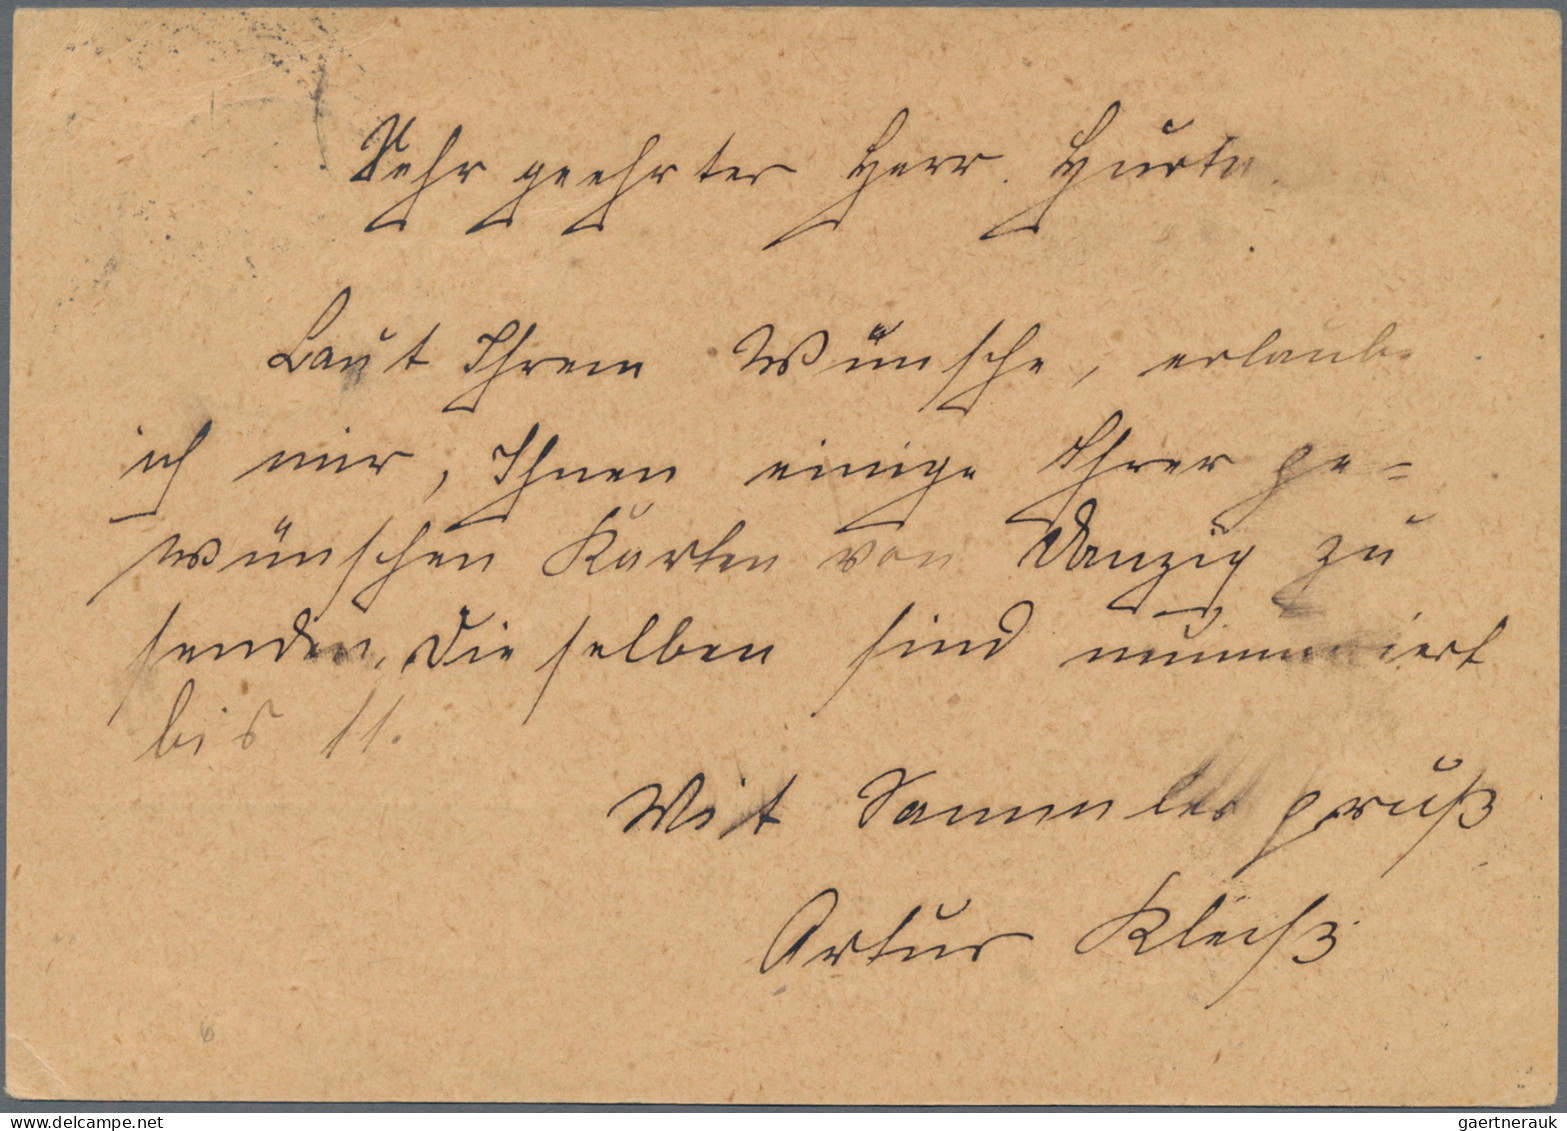 Sehr geehrter Herr
Laut Ihrem Wünsche, erlaube
ich mir, Ihnen einige Ihrer ge=
wünschen Karten von Danzig zu
senden, Dieselben sind nummeriert
bis 11.
Mit Sammlergruß
Artur Kleiß
6
gaertnerauk